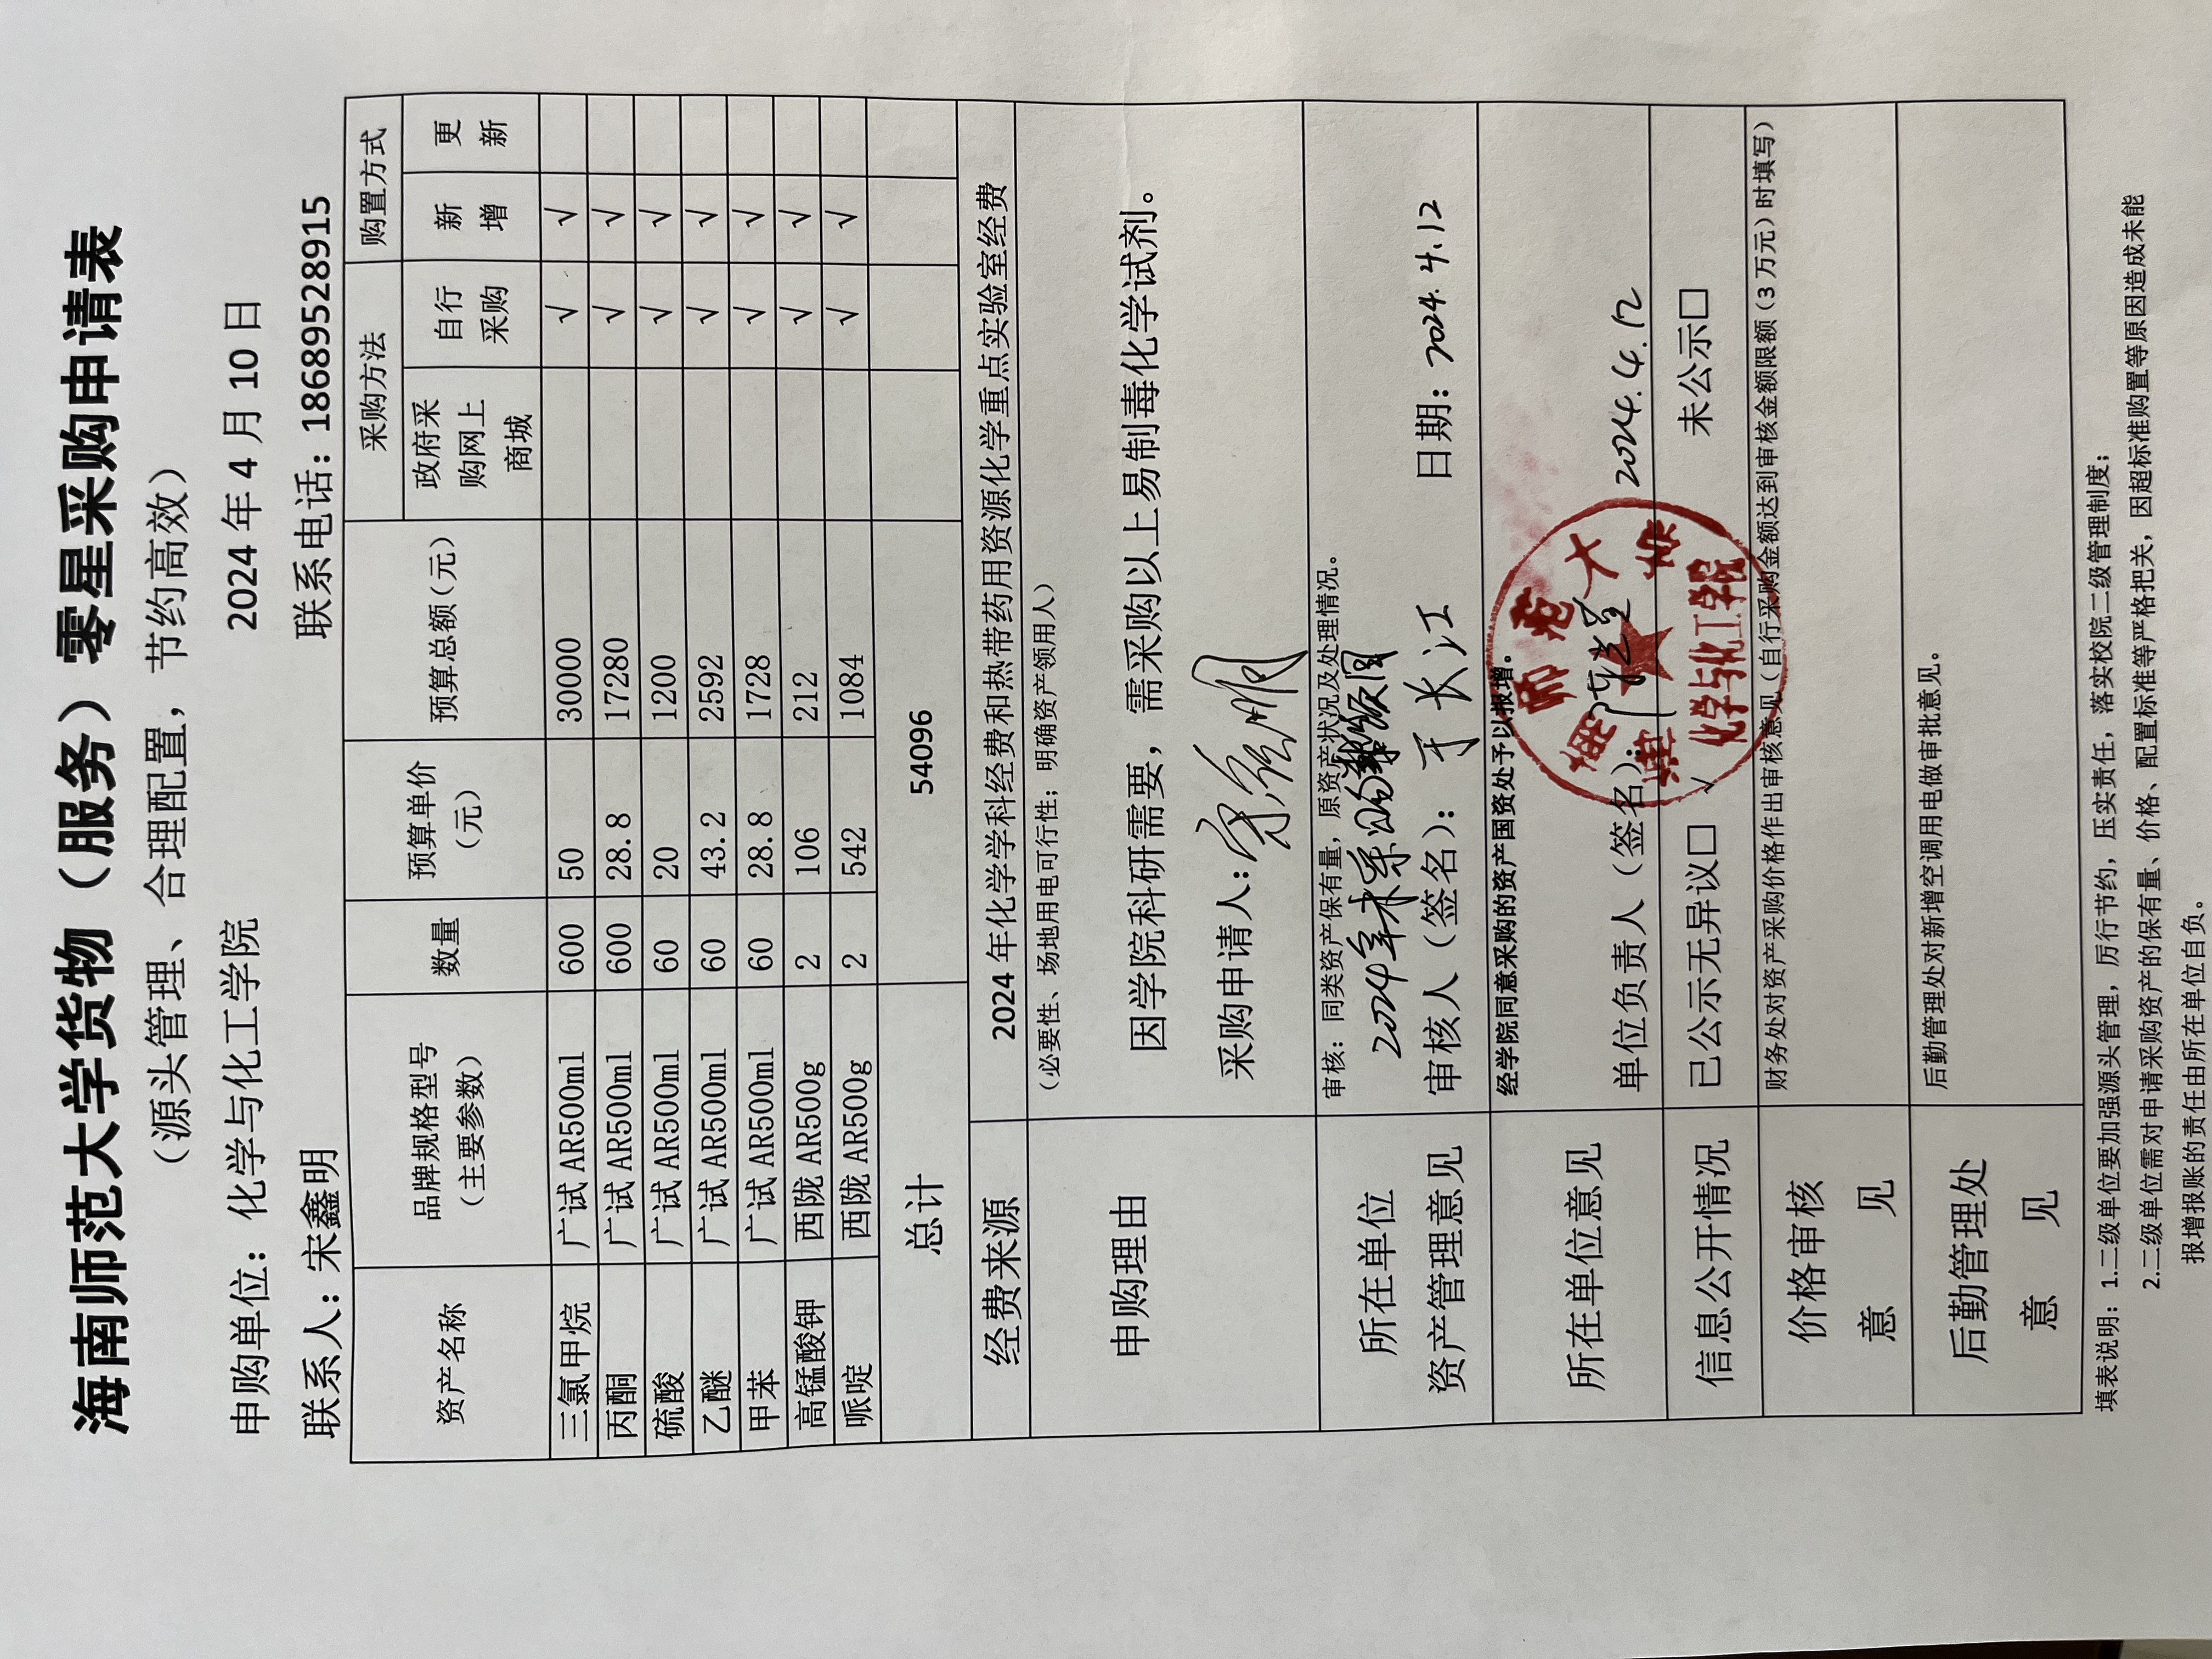 海南师范大学货物（服务）零星采购申请表
（源头管理、合理配置，节约高效）
申购单位：化学与化工学院 2024 年 4 月 10 日
联系人：宋鑫明 联系电话：18689528915
资产名称 品牌规格型号（主要参数） 数量 预算单价（元） 预算总额（元） 采购方法 购置方式
政府采购网上商城 自行采购 新增 更新
三氯甲烷 广试 AR500ml 600 50 30000 √ √
丙酮 广试 AR500ml 600 28.8 17280 √ √
硫酸 广试 AR500ml 60 20 1200 √ √
乙醚 广试 AR500ml 60 43.2 2592 √ √
甲苯 广试 AR500ml 60 28.8 1728 √ √
高锰酸钾 西陇 AR500g 2 106 212 √ √
哌啶 西陇 AR500g 2 542 1084 √ √
总计 54096
经费来源 2024 年化学学科经费和热带药用资源化学重点实验室经费
申购理由 （必要性、场地用电可行性；明确资产领用人）
因学院科研需要，需采购以上易制毒化学试剂。
采购申请人：宋鑫明
所在单位资产管理意见 审核：同类资产保有量，原资产状况及处理情况。
2024年未采购
审核人（签名）：于长江 日期：2024.4.12
所在单位意见 经学院同意采购的资产国资处予以报增。
单位负责人（签名）： 2024.4.12
海南师范大学
化学与化工学院
信息公开情况 已公示无异议□ √ 未公示□
价格审核意见 财务处对资产采购价格作出审核意见（自行采购金额达到审核金额限额（3 万元）时填写）
后勤管理处意见 后勤管理处对新增空调用电做审批意见。
填表说明：1.二级单位要加强源头管理，厉行节约，压实责任，落实校院二级管理制度；
2.二级单位需对申请采购资产的保有量、价格、配置标准等严格把关，因超标准购置等原因造成未能
报增报账的责任由所在单位自负。